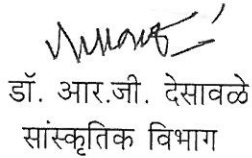 डॉ. आर.जी. देसावळे
सांस्कृतिक विभाग